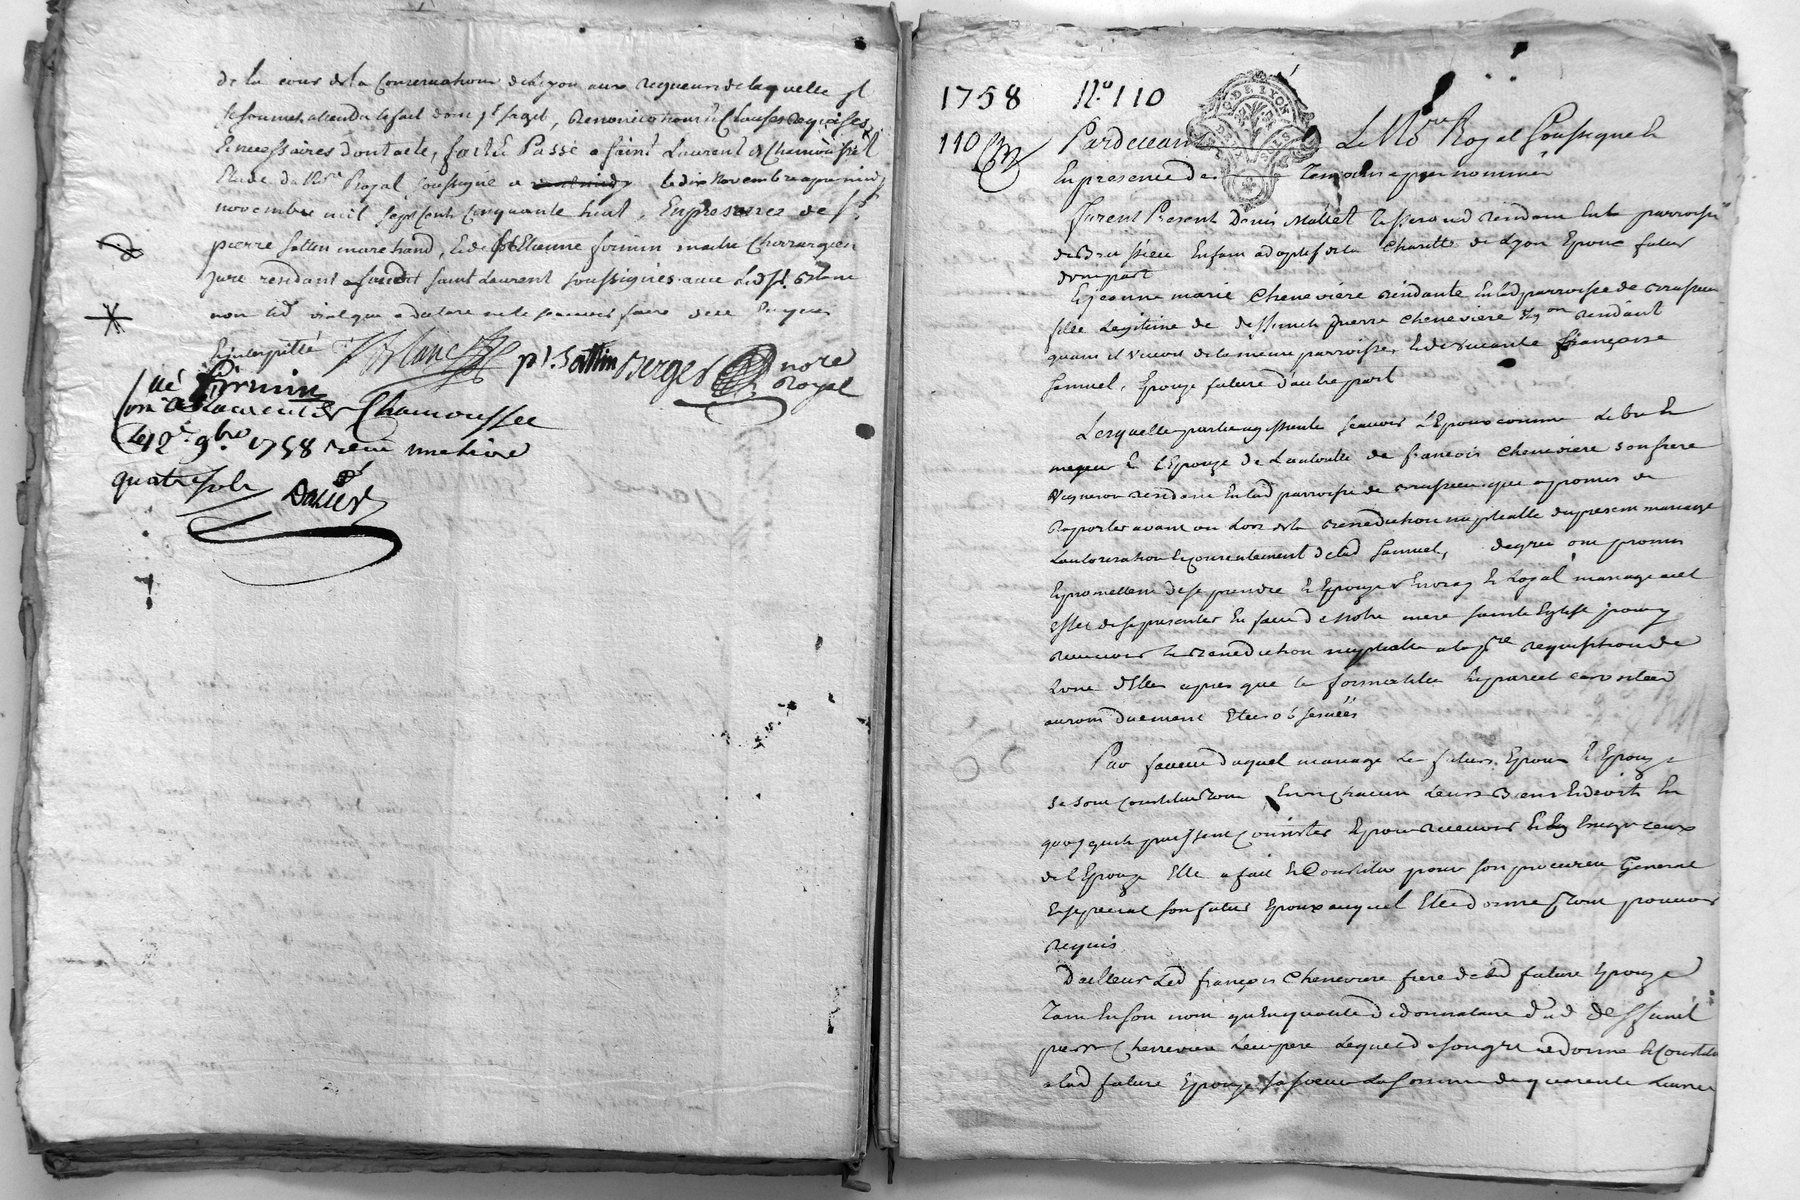 de la cour de la Conservation de Lyon aux rigueurs de laquelle il
se soumet attendu le fait dont s'agit, renonciations & clauses requises
& necessaires dont acte, fait & Passé a saint Laurent de Chamousset
Etude du No.re Royal soussigné le dix novembre apres midy
novembre mil sept cent cinquante huit, En presence de s.r
pierre sattin marchand, & de s.r Etienne firmin maitre Chirurgien
Juré residant audit saint Laurent soussignés avec led. s.r Blanc
non led. vial qui a declaré ne le scavoir faire de ce Enquis
& interpellé
Blanc
p.r Sattin
Berger
no.re
Royal
firmin
Con.lé a s.t Laurent de Chamousset
Le 12.e 9.bre 1758 reçu une livre
quatre sols
Dallier
1758 N.o 110
110
Pardevant Le No.re Royal Soussigné &
En presence des Temoins apres nommés
GD DE LYON
furent Present Denis Mallet Tisserand residant En la parroisse
de Brussieu Enfant adoptif de la Charitté de Lyon Epoux futur
d'une part
Et Jeanne marie Cheneviere residante En lad. parroisse de Brussieu
fille Legitime de deffunct pierre Cheneviere vig.on residant
quant il vivoit de la meme parroisse, & de vivante françoise
Samuel, Epouze future d'autre part
Lesquelles parties agissantes scavoir L'Epoux comme Libre &
majeur & L'Epouze de L'autorité de françois Cheneviere son frere
vigneron residant En lad. parroisse de Brussieu qui a promis de
raporter avant ou Lors de la Benediction nuptialle du present mariage
L'autorisation & consentement de lad. Samuel, de gré ont promis
& promettent de se prendre & Epouzer En vray & Loyal mariage a cet
effet de se presenter En face de Notre mere sainte Eglise pour y
recevoir la Benediction nuptialle a la p.re requisition de
L'une d'elles apres que les formalités En pareil cas
auront duement Etté observées
Par faveur duquel mariage Les futurs Epoux & Epouze
se sont constitués En chacun Leurs Biens & droits En
quoy qu'ils puissent Consister & pour recevoir & Exiger ceux
de L'Epouze Elle a fait & Constitué pour son procureur General
& special son futur Epoux auquel Elle donne tout pouvoir
requis
D'ailleurs Led. françois Cheneviere frere de lad. future Epouze
Tant En son nom qu'En qualité de donnataire dud. deffunct
pierre Cheneviere Leur pere Lequel de son gré a donné & constitué
a lad. future Epouze sa soeur La somme de quarente Livres